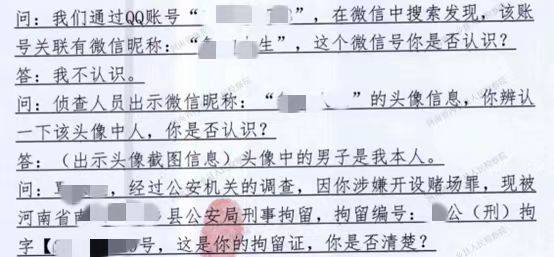 问：我们通过QQ账号“ ”，在微信中搜索发现，该账
号关联有微信昵称：“ 生”，这个微信号你是否认识？
答：我不认识。
问：侦查人员出示微信昵称：“ ”的头像信息，你辨认
一下该头像中人，你是否认识？
答：（出示头像截图信息）头像中的男子是我本人。
问： ，经过公安机关的调查，因你涉嫌开设赌场罪，现被
河南省南 县公安局刑事拘留，拘留编号： 公（刑）拘
字【 号，这是你的拘留证，你是否清楚？